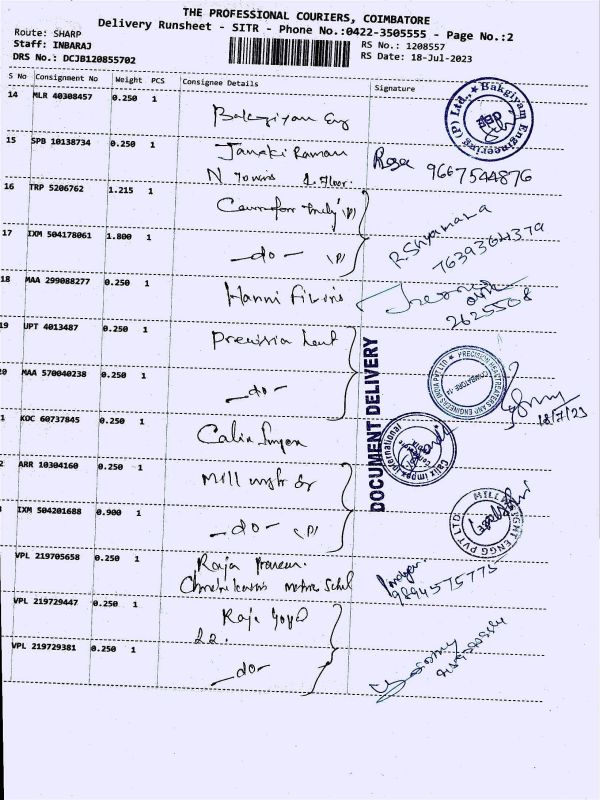 THE PROFESSIONAL COURIERS, COIMBATORE
Delivery Runsheet - SITR - Phone No.:0422-3505555 - Page No.:2
Route: SHARP
Staff: INBARAJ
DRS No.: DCJB120855702
RS No.: 1208557
RS Date: 18-Jul-2023
S No Consignment No Weight PCS Consignee Details Signature
14 MLR 40308457 0.250 1 Bakgiyam Eng
Bakgiyam Engineering (P) Ltd.,
15 SPB 10138734 0.250 1 Janaki Raman
N. Towns 1. Floor. Roja 9667544876
16 TRP 5206762 1.215 1
R. Shyamala
7639364379
17 IXM 504178061 1.800 1 -do- (P)
18 MAA 299088277 0.250 1 Hanni
2625508
19 UPT 4013487 0.250 1 Precission
PRECISION HEATTREATERS AND ENGINEERS INDIA PVT LTD
COIMBATORE-12
20 MAA 570040238 0.250 1 -do-
18/7/23
DOCUMENT DELIVERY
1 KOC 60737845 0.250 1 Calix Impex
Calix Impex International
2 ARR 10304160 0.250 1 Mill
MILL WRIGHT ENGG PVT LTD.
IXM 504201688 0.900 1 -do- (P)
VPL 219705658 0.250 1 Raja
9894575775
VPL 219729447 0.250 1 Raja
VPL 219729381 0.250 1 -do-